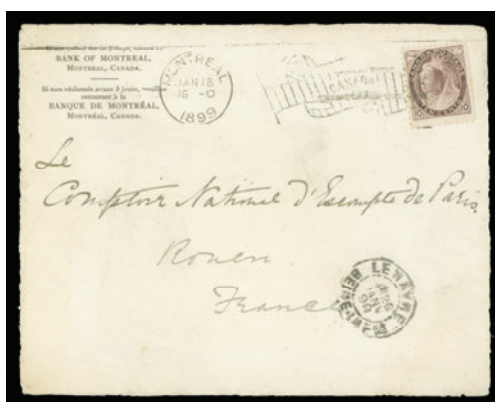 BANK OF MONTREAL,
MONTREAL, CANADA.
Si non réclamée avant 5 jours, veuillez
retourner à la
BANQUE DE MONTRÉAL,
MONTRÉAL, CANADA.
MONTREAL
JAN 18
16-0
1899
CANADA
10 10
Le
Comptoir National d'Escompte de Paris
Rouen
France
LE HAVRE